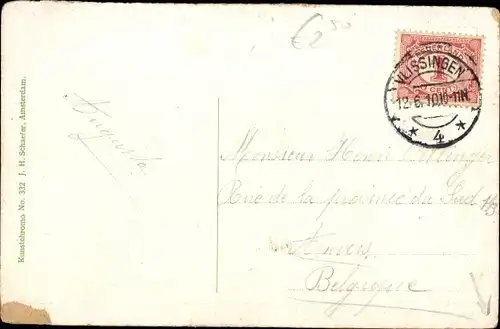 €2,50
NEDERLAND
1 CENT
VLISSINGEN
12.6.10 10-11N.
4
Augusta
Monsieur Henri
Rue de la province du Sud
Anvers
Belgique
Kunstchromo No. 332 J. H. Schaefer, Amsterdam.